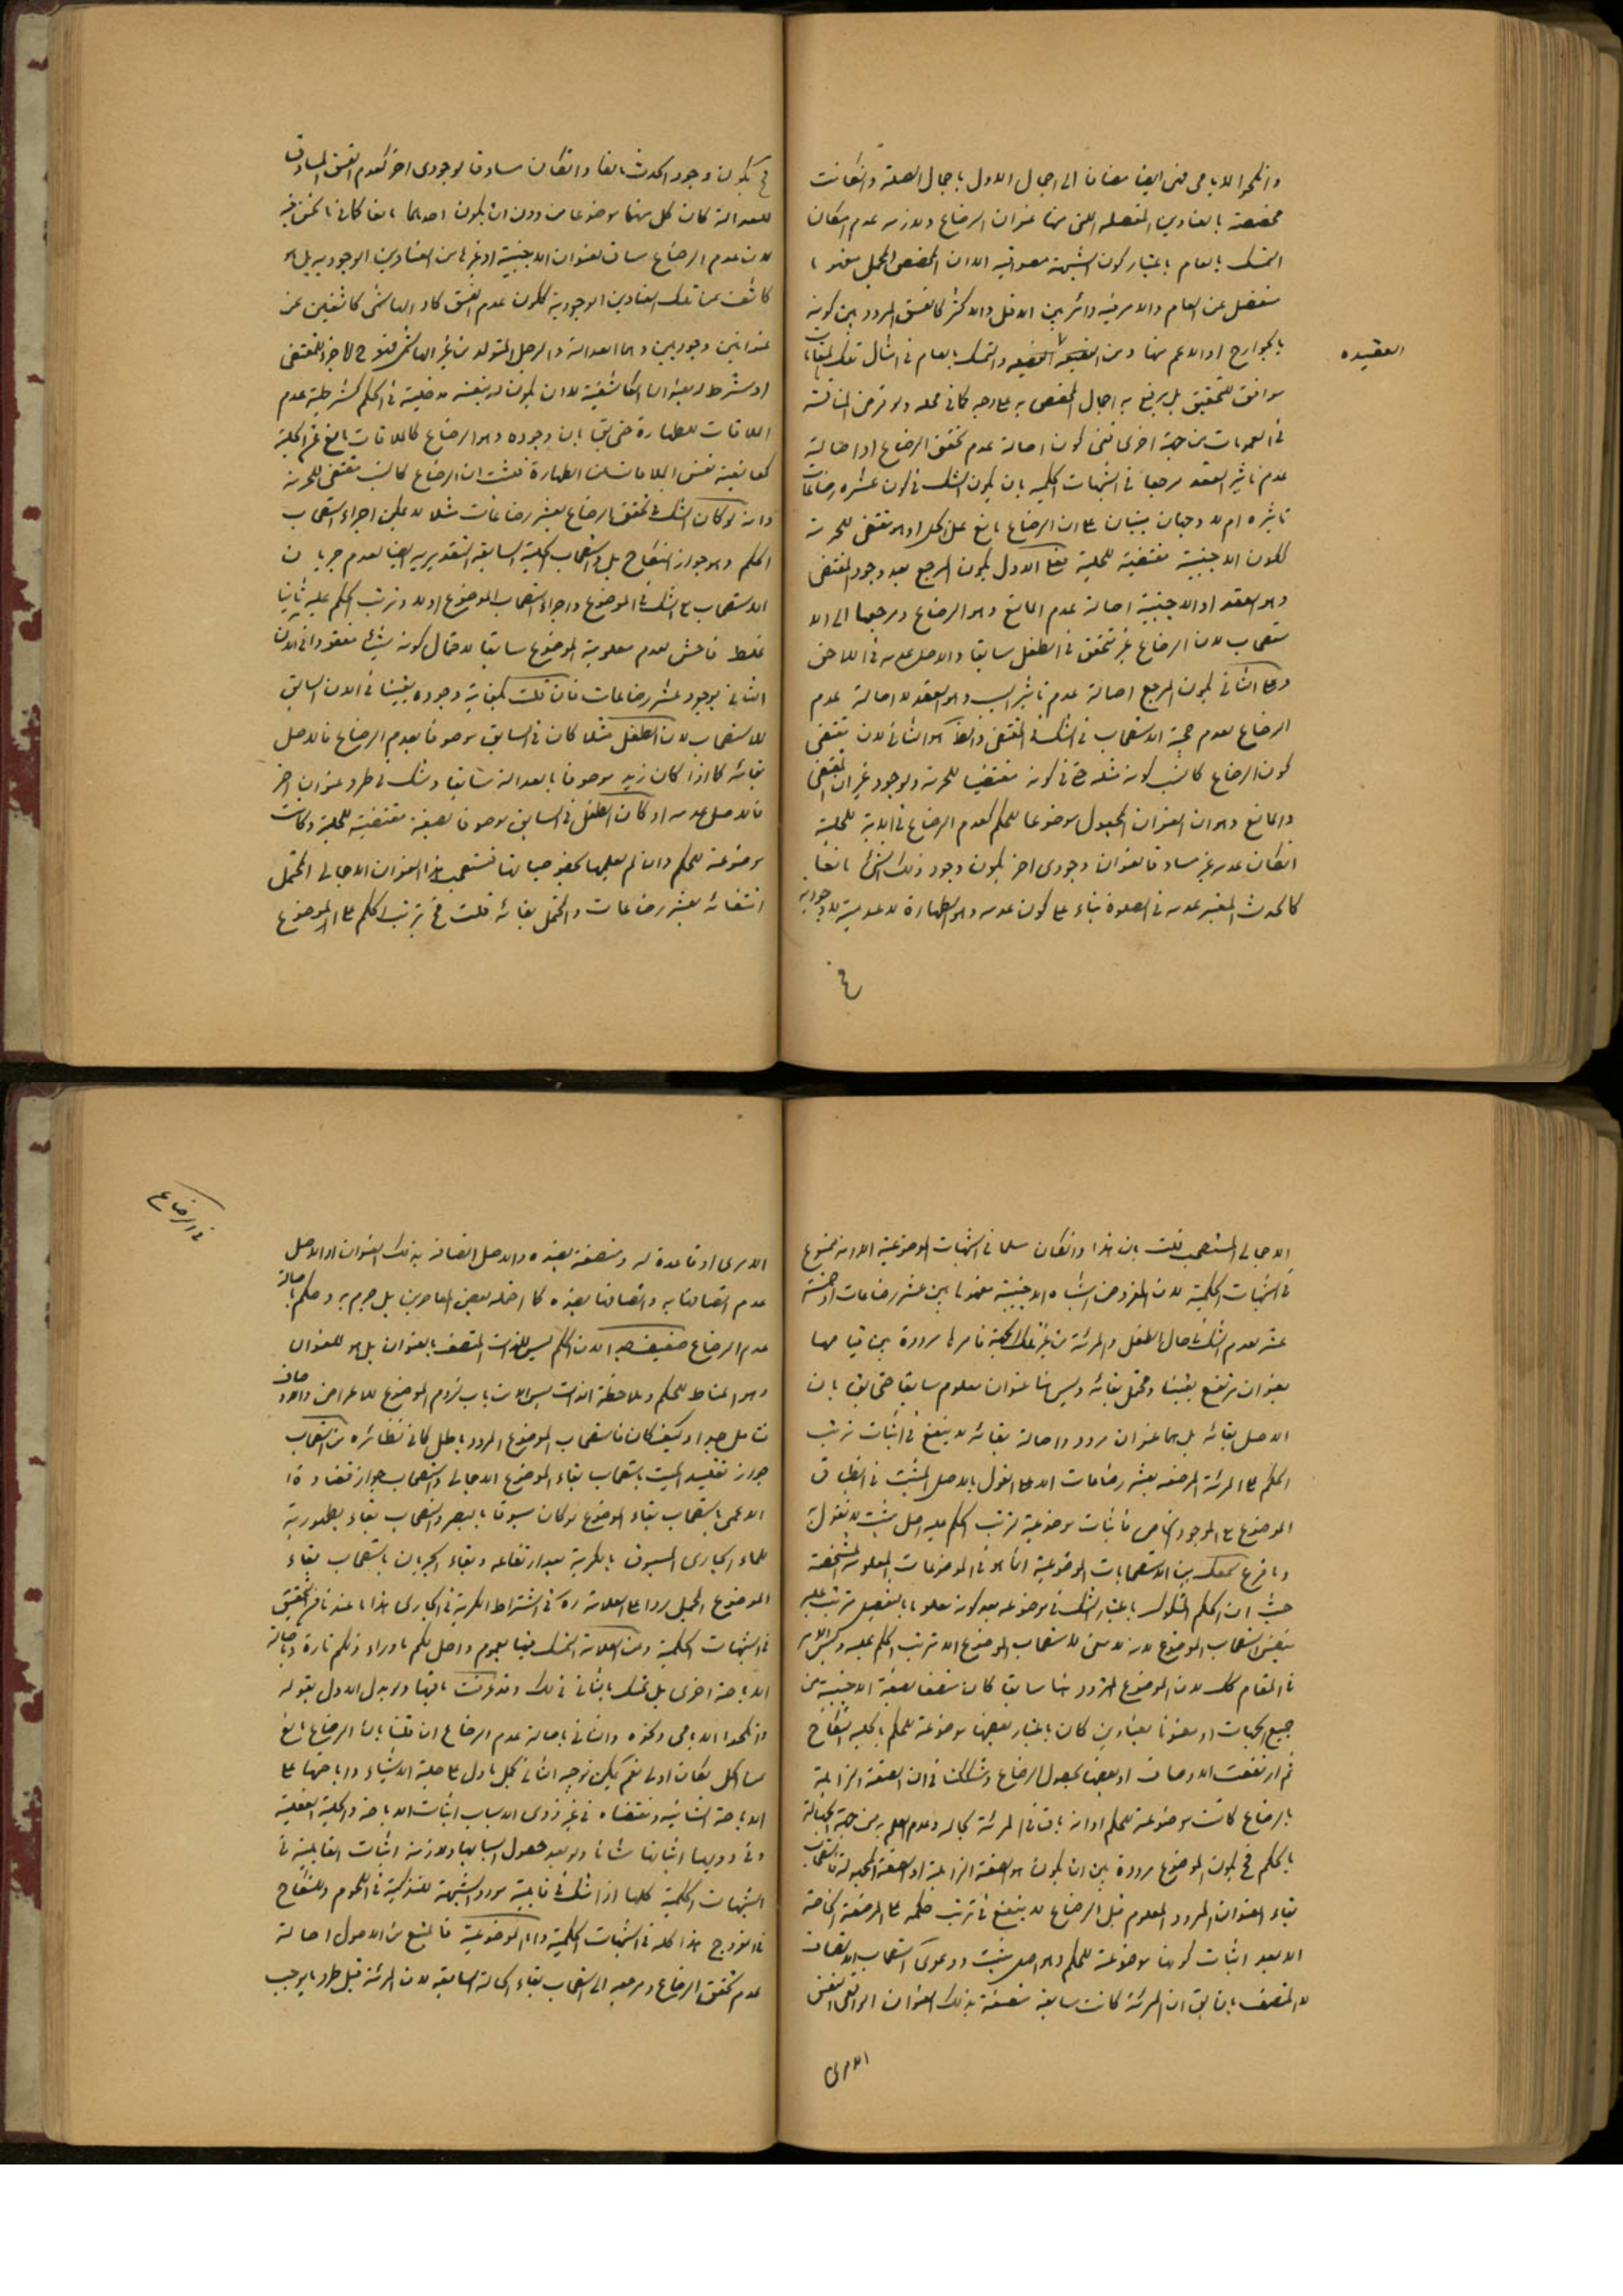 وانكحوا الايامى فنى ايضا مضافا الى اجمال الاول باجمال الصلة وانكانت
مخصصة بالعناوين المفصلة التى منها عنوان الرضاع ولازمه عدم امكان
التمسك بالعام باعتبار كون الشبهة مصداقيه الا ان المخصص المجمل مفهوما
منفصل عن العام والامر فيه دائر بين الاقل والاكثر كالفسق المردد بين كونه
بالجوارح او الاعم منها ومن العقيدة والتمسك بالعام فى امثال تلك المقامات
العقيده
موافق للتحقيق بل يرفع به اجمال المخصص به على وجه كما فى محله ولو فرض المناقشة
فى العمومات من جهة اخرى فنى كون اصالة عدم تحقق الرضاع او اصالة
عدم تاثير العقد مرجعا فى الشبهات الحكميه بان يكون الشك فى كون عشره رضاعات
تاثيره ام لا وجهان مبنيان على ان الرضاع مانع عن الحل او هو مقتضى للحرمة
لكون الاجنبية مقتضية للحلية فعلى الاول يكون المرجع بعد وجود المقتضى
وهو العقد او الاجنبية اصالة عدم المانع وهو الرضاع ومرجعها الى الا
ستصحاب لان الرضاع غير متحقق فى الطفل سابقا والاصل عدمه فى اللاحق
وعلى الثانى يكون المرجع اصالة عدم تاثير السبب وهو العقد لا اصالة عدم
الرضاع لعدم حجية الاستصحاب فى الشك فى المقتضى والظ هو الثانى لان مقتضى
كون الرضاع كالنسب كونه مثله حتى فى كونه مقتضيا للحرمة ولوجود غير ان المقتضى
والمانع وهو ان العنوان المجعول موضوعا للحكم كعدم الرضاع فى الاية للحلية
انكان عدمه غير مساوقا لعنوان وجودى اخر يكون وجود ذلك الشئ مانعا
كالحدث المعتبر عدمه فى الصلوة بناء على كون عدمه وهو الطهارة لا عدمية لا وجودية
فح
فح يكون وجود الحدث مانعا وانكان مساوقا لوجودى اخر كعدم الفسق المساوق
للعدالة كان كل منهما موضوعا من دون ان يكون احدهما مانعا كما فى ما نحن فيه
لان عدم الرضاع مساوق لعنوان الاجنبية او غيرها من العناوين الوجوديه بل هو
كاشف عن تلك العناوين الوجودية ككون عدم الفسق كاو الهاشمى كاشفين عن
عنوانين وجوديين وهما العدالة والرجل المتولد من غير الهاشمى فهو ح لا جزء للمقتضى
او شرط له بعنوان الكاشفية لا ان يكون له بنفسه مدخلية فى الحكم كشرطية عدم
الملاقات للطهارة حتى يق بان وجوده وهو الرضاع كالملاقات مانع عن الحلية
كمانعية نفس الملاقات عن الطهارة فثبت ان الرضاع كالنسب مقتضى للحرمة
وانه لو كان الشك فى تحقق الرضاع بعشر رضاعات مثلا لا يمكن اجراء استصحاب
الحكم وهو جواز النكاح بل ولا استصحاب الحلية السابقه التقديريه ايضا لعدم جريان
الاستصحاب مع الشك فى الموضوع واجراء استصحاب الموضوع اولا وترتب الحكم عليه ثانيا
غلط فاحش لعدم معلومية الموضوع سابقا لاحتمال كونه شيئا مفقودا فى الان
الثانى بوجود عشر رضاعات فان قلت يكفينا وجوده يقينا فى الان السابق
للاستصحاب لان الطفل مثلا كان فى السابق موصوفا بعدم الرضاع فالاصل
بقائه كما اذا كان زيد موصوفا بالعدالة سابقا وشك فى طرو عنوان اخر
فالاصل عدمه او كان الطفل فى السابق موصوفا بصفة مقتضية للحلية وكانت
موضوعة للحكم وان لم نعلمها بخصوصياتها فنستصحب هذا العنوان الاجمالى المحتمل
انتفائه بعشر رضاعات والمحتمل بقائه قلت فح ترتب الحكم على الموضوع
الاجمالى المستصحب قلت بان هذا وانكان مسلما فى الشبهات الموضوعية الا انه ممنوع
فى الشبهات الحكمية لان المفروض اشتباه الاجنبية مفهوما بين عشر رضاعات او خمسة
عشر لعدم الشك فى حال الطفل والمرئة من غير تلك الجهة فامرها مرددة بين قيامها
بعنوان مرتفع يقينا ومحتمل بقائه وليس هنا عنوان معلوم سابقا حتى يق بان
الاصل بقائه بل هما عنوان مردد واصالة بقائه لا ينفع فى اثبات ترتب
الحكم على المرئة المرضعة بعشر رضاعات الا على القول بالاصل المثبت فى انطباق
الموضوع على الموجود الخاص فاثبات موضوعية لترتب الحكم عليه اصل مثبت لا نقول به
وما قرع سمعك من الاستصحابات الموضوعية انما هو فى الموضوعات المعلومة المشخصة
حيث ان الحكم المشكوك باعتبار الشك فى موضوعه بعد كونه معلوما بالتفصيل مترتب عليه
بنفس استصحاب الموضوع لانه لا معنى لاستصحاب الموضوع الا ترتب الحكم عليه وليس الامر
فى المقام كك لان الموضوع المردد هنا سابقا كان متصفا بصفة الاجنبية من
جميع الجهات او معنونا بعناوين كان باعتبار بعضها موضوعة للحكم بالحلية النكاح
ثم ارتفعت الاوصاف او بعضها بحصول الرضاع وشككت فى ان الصفة الزائلة
بالرضاع كانت موضوعة للحكم او انه باق فى المرئة بحاله وعدم العلم به من جهة الجهالة
بالحكم فح يكون الموضوع مرددة بين ان يكون هو الصفة الزائلة او الصفة المجهولة فاستصحاب
بقاء العنوان المردد المعلوم قبل الرضاع لا ينفع فى ترتب حكمه على المرضعة الخاصة
الا بعد اثبات كونها موضوعة للحكم وهو اصل مثبت ودعوى استصحاب الاتصاف
لا المتصف بان يق ان المرئة كانت سابقة متصفة بذلك العنوان الواقعى النفس
الامرى
فى الرضاع
الامرى او قاعدة له ومتصفة بضده والاصل اتصافه بذلك العنوان او الاصل
عدم اتصافها به واتصافها بضده كما احتمله بعض المعاصرين بل جزم به وحكم باصالة
عدم الرضاع ضعيف جدا لان الحكم ليس للذات المتصف بالعنوان بل هو للعنوان
وهو المناط للحكم وملاحظة الذات ليس الا من باب لزوم الموضوع للاعراض والاوصاف
تامل جدا وكيف كان فاستصحاب الموضوع المردد باطل كما فى نظائره من استصحاب
جواز تقليد الميت باستصحاب بقاء الموضوع الاجمالى واستصحاب جواز قضاوة
الاعمى باستصحاب بقاء الموضوع لو كان مسبوقا بالبصر واستصحاب بقاء مطهورية
للماء الجارى المسبوق بالكرية بعد ارتفاعه وبقاء الجريان باستصحاب بقاء
الموضوع المجمل ردا على العلامة ره فى اشتراط الكرية فى الجارى هذا ما عندنا من التحقيق
فى الشبهات الحكمية وعن العلامة التمسك فيها بعموم واحل لكم ما وراء ذلكم تارة وباصالة
الاباحة اخرى بل تمسك بالثانى فى ذلك وقد عرفت ما فيهما ولو بدل الاول بقوله
وانكحوا الايامى ونحوه والثانى باصالة عدم الرضاع ان قلنا بان الرضاع مانع
عن الحل لكان اولى نعم يمكن توجيه الثانى بحمل الاول على حلية الاشياء واباحتها على
الاباحة الشانية ومقتضاه فى غير ذوى الاسباب اثبات الاباحة والحلية الفعلية
وفى ذويها اثباتها شانا ولو بعد حصول اسبابها ولازمه اثبات القابلية فى
الشبهات الحكمية كلها اذا شك فى قابلية مورد الشبهة للتذكية فى اللحوم وللنكاح
فى الفروج هذا كله فى الشبهات الحكمية واما الموضوعية فالمتبع من الاصول اصالة
عدم تحقق الرضاع ومرجعه الى استصحاب بقاء الحالة السابقة لان المرئة قبل طرو ما يوجب